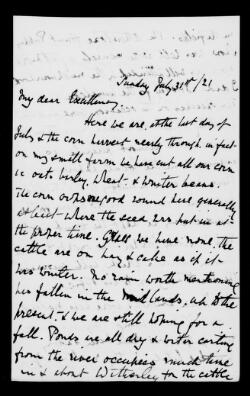 Sunday July 31st/21
My dear Excellency,
Here we are, at the last day of
July & the corn harvest nearly through, in fact
on my small farm we have cut all our corn
ie oat. barley, wheat & winter beans.
The corn crops are good round here generally
at least where the seed was put in at
the proper time. Grass we have none, the
cattle are on hay & cake as if it
was winter. No rain worth mentioning
has fallen in the Midlands, up to the
present, & we are still hoping for a
fall. Ponds are all dry & water carting
from the river occupies much time
in & about for the cattle